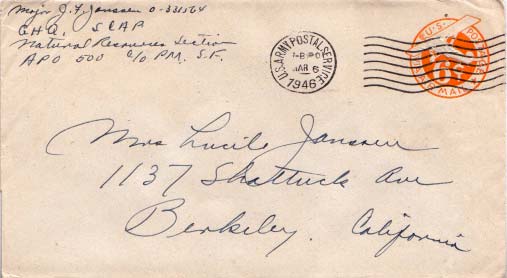 Major J. F. Janssen O-331564
GHQ, SCAP
Natural Resources Section
APO 500 c/o PM. S.F.
U.S. ARMY POSTAL SERVICE
MAR 6
1946
U.S. POSTAGE
AIR MAIL
6¢
Mrs Lucile Janssen
1137 Shattuck Ave
Berkeley, California